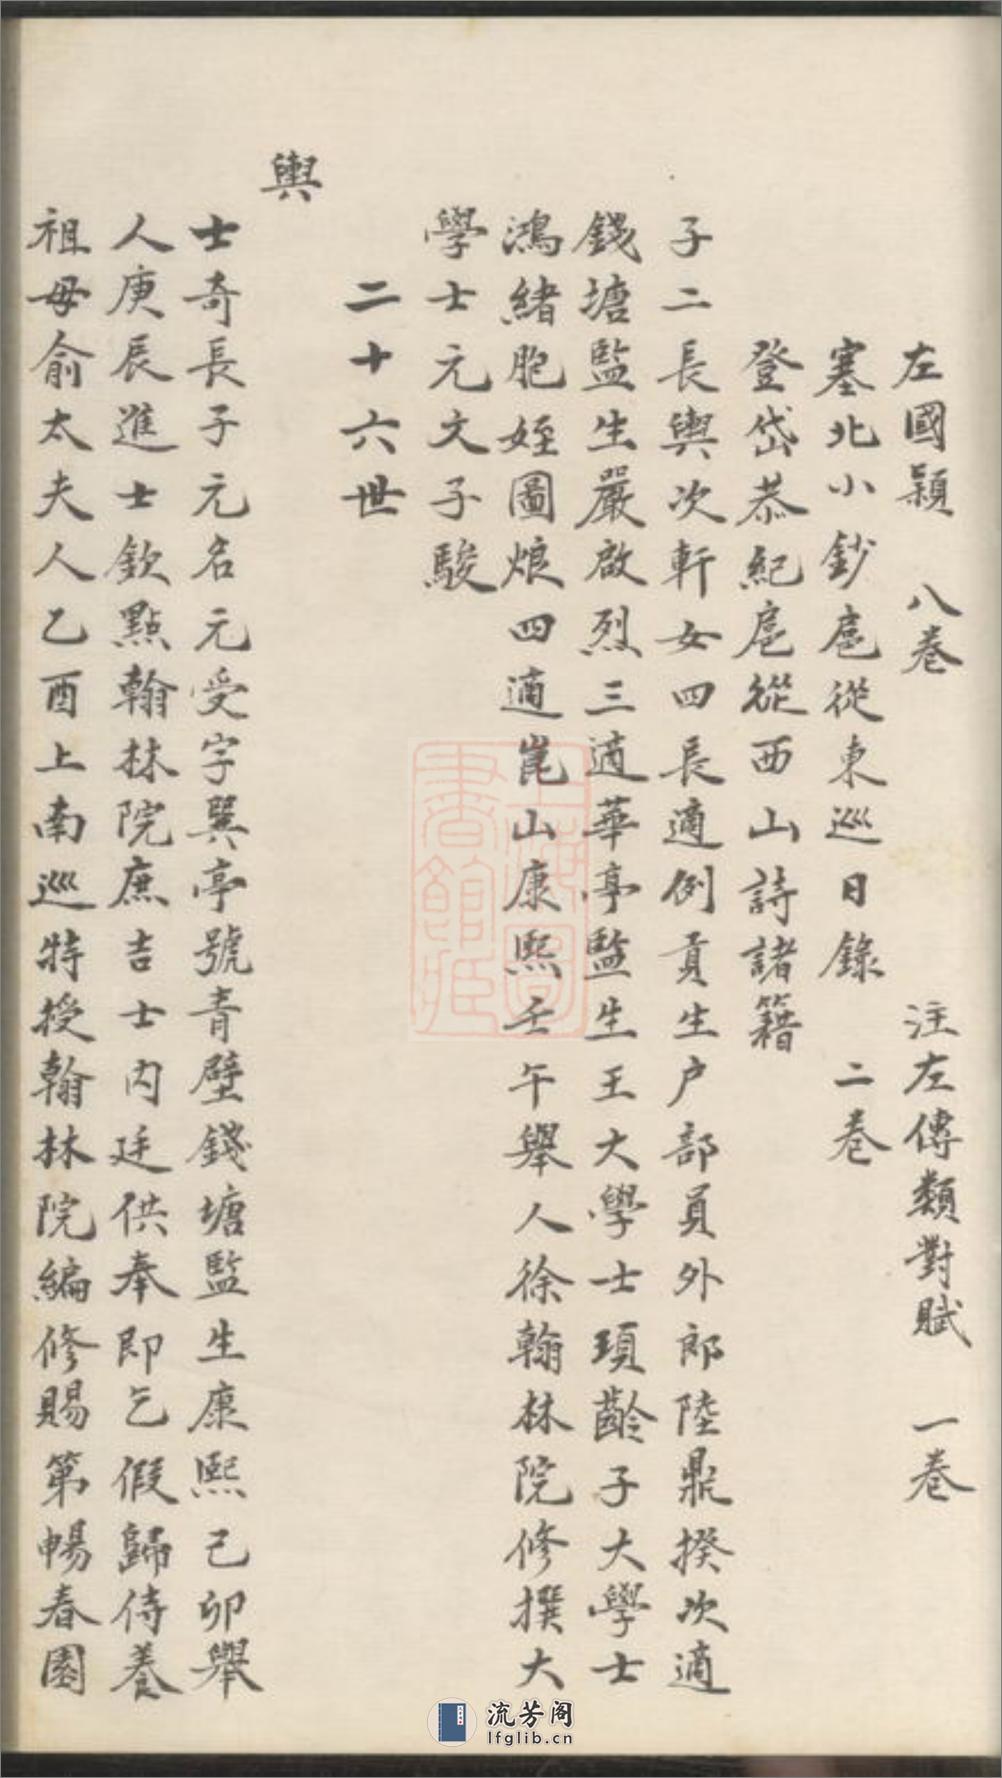 左國穎 八卷 注左傳類對賦 一卷
塞北小鈔扈從東巡日錄 二卷
登岱恭紀扈從西山詩諸籍
子二長輿次軒女四長適例貢生户部員外郎陸鼎揆次適
錢塘監生嚴啟烈三適華亭監生王大學士頊齡子大學士
鴻緒胞姪圖烺四適崑山康熙壬午舉人徐翰林院修撰大
學士元文子駿
二十六世
輿
士奇長子元名元受字巽亭號青壁錢塘監生康熙己卯舉
人庚辰進士欽點翰林院庶吉士内廷供奉即乞假歸侍養
祖母俞太夫人乙酉上南巡特授翰林院編修賜第暢春園
上海圖書館藏
流芳阁
lfglib.cn